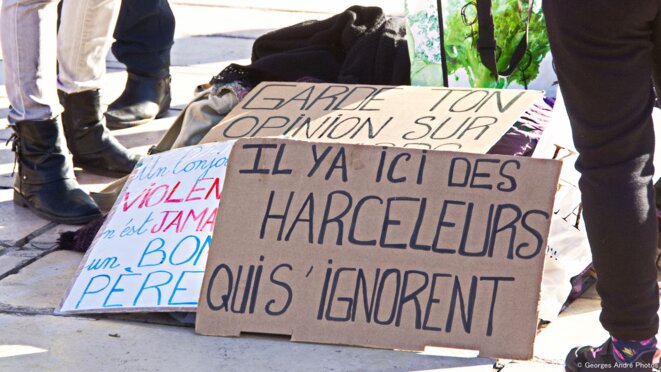 GARDE TON
OPINION SUR
Un Conjoint
VIOLENT
n'est JAMAIS
un BON
PÈRE
IL Y A ICI DES
HARCELEURS
QUI S'IGNORENT
© Georges André Photos